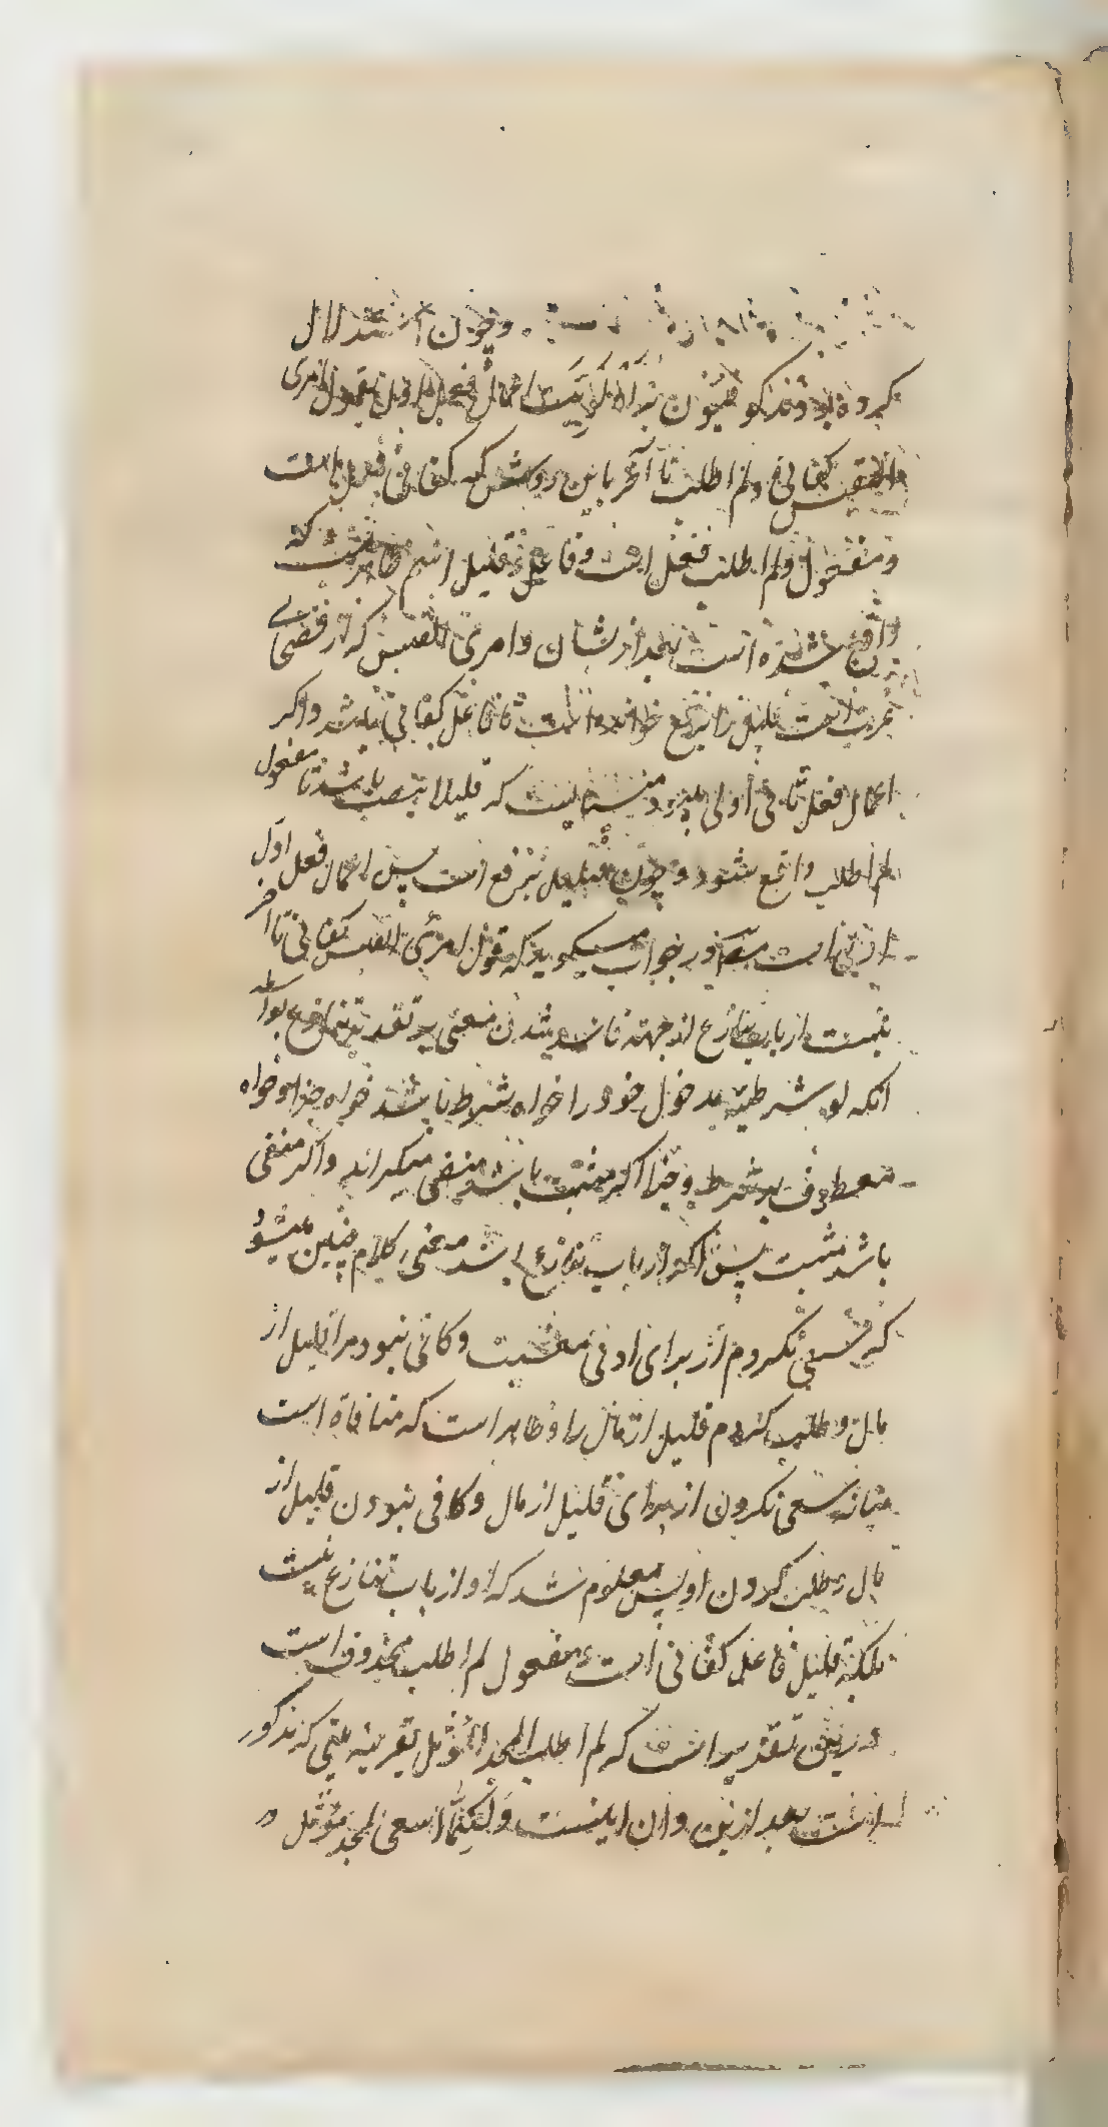 وچون استدلال
کرده بودند کوفیون بر اولویت اعمال فعل اول بقول امری
القیس کفانی ولم اطلب تا آخر باین روش که کفانی فعل است
و مفعول ولم اطلب فعل است و فاعل و قلیل اسم ظاهریست که
واقع شده است بعد از شان وامرئ القیس که از فصحای
عرب است قلیل را برفع خوانده است تا فاعل کفانی باشد واکر
اعمال فعل ثانی اولی بودی بایست که قلیلا بنصب باشد تا مفعول
لم اطلب واقع شود و چون قلیل برفع است پس اعمال فعل اول
اولی است مص در جواب میکوید که قول امرئ القیس کفانی تا آخر
نیست از باب تنازع از جهة فاسد شدن معنی بر تقدیر تنازع بواسطه
انکه لو شرطیه مدخول خود را خواه شرط باشد خواه جزا و خواه
معطوف بر شرط و جزا اکر مثبت باشد منفی میکرداند واکر منفی
باشد مثبت پس اکر از باب تنازع باشد معنی کلام چنین میشود
که سعی نکردم از برای ادنی معیشت و کافی نبود مرا قلیل از
مال و طلب کردم قلیل از مال را و ظاهر است که منافاة است
میانه سعی نکردن از برای قلیل از مال و کافی نبودن قلیل از
مال و طلب کردن او پس معلوم شد که او از باب تنازع نیست
بلکه قلیل فاعل کفانی است و مفعول لم اطلب محذوف است
در تقدیر است که لم اطلب المجد المؤثل بقرینه بیتی که مذکور
است بعد ازین وان اینست ولکنما اسعی لمجد مؤثل